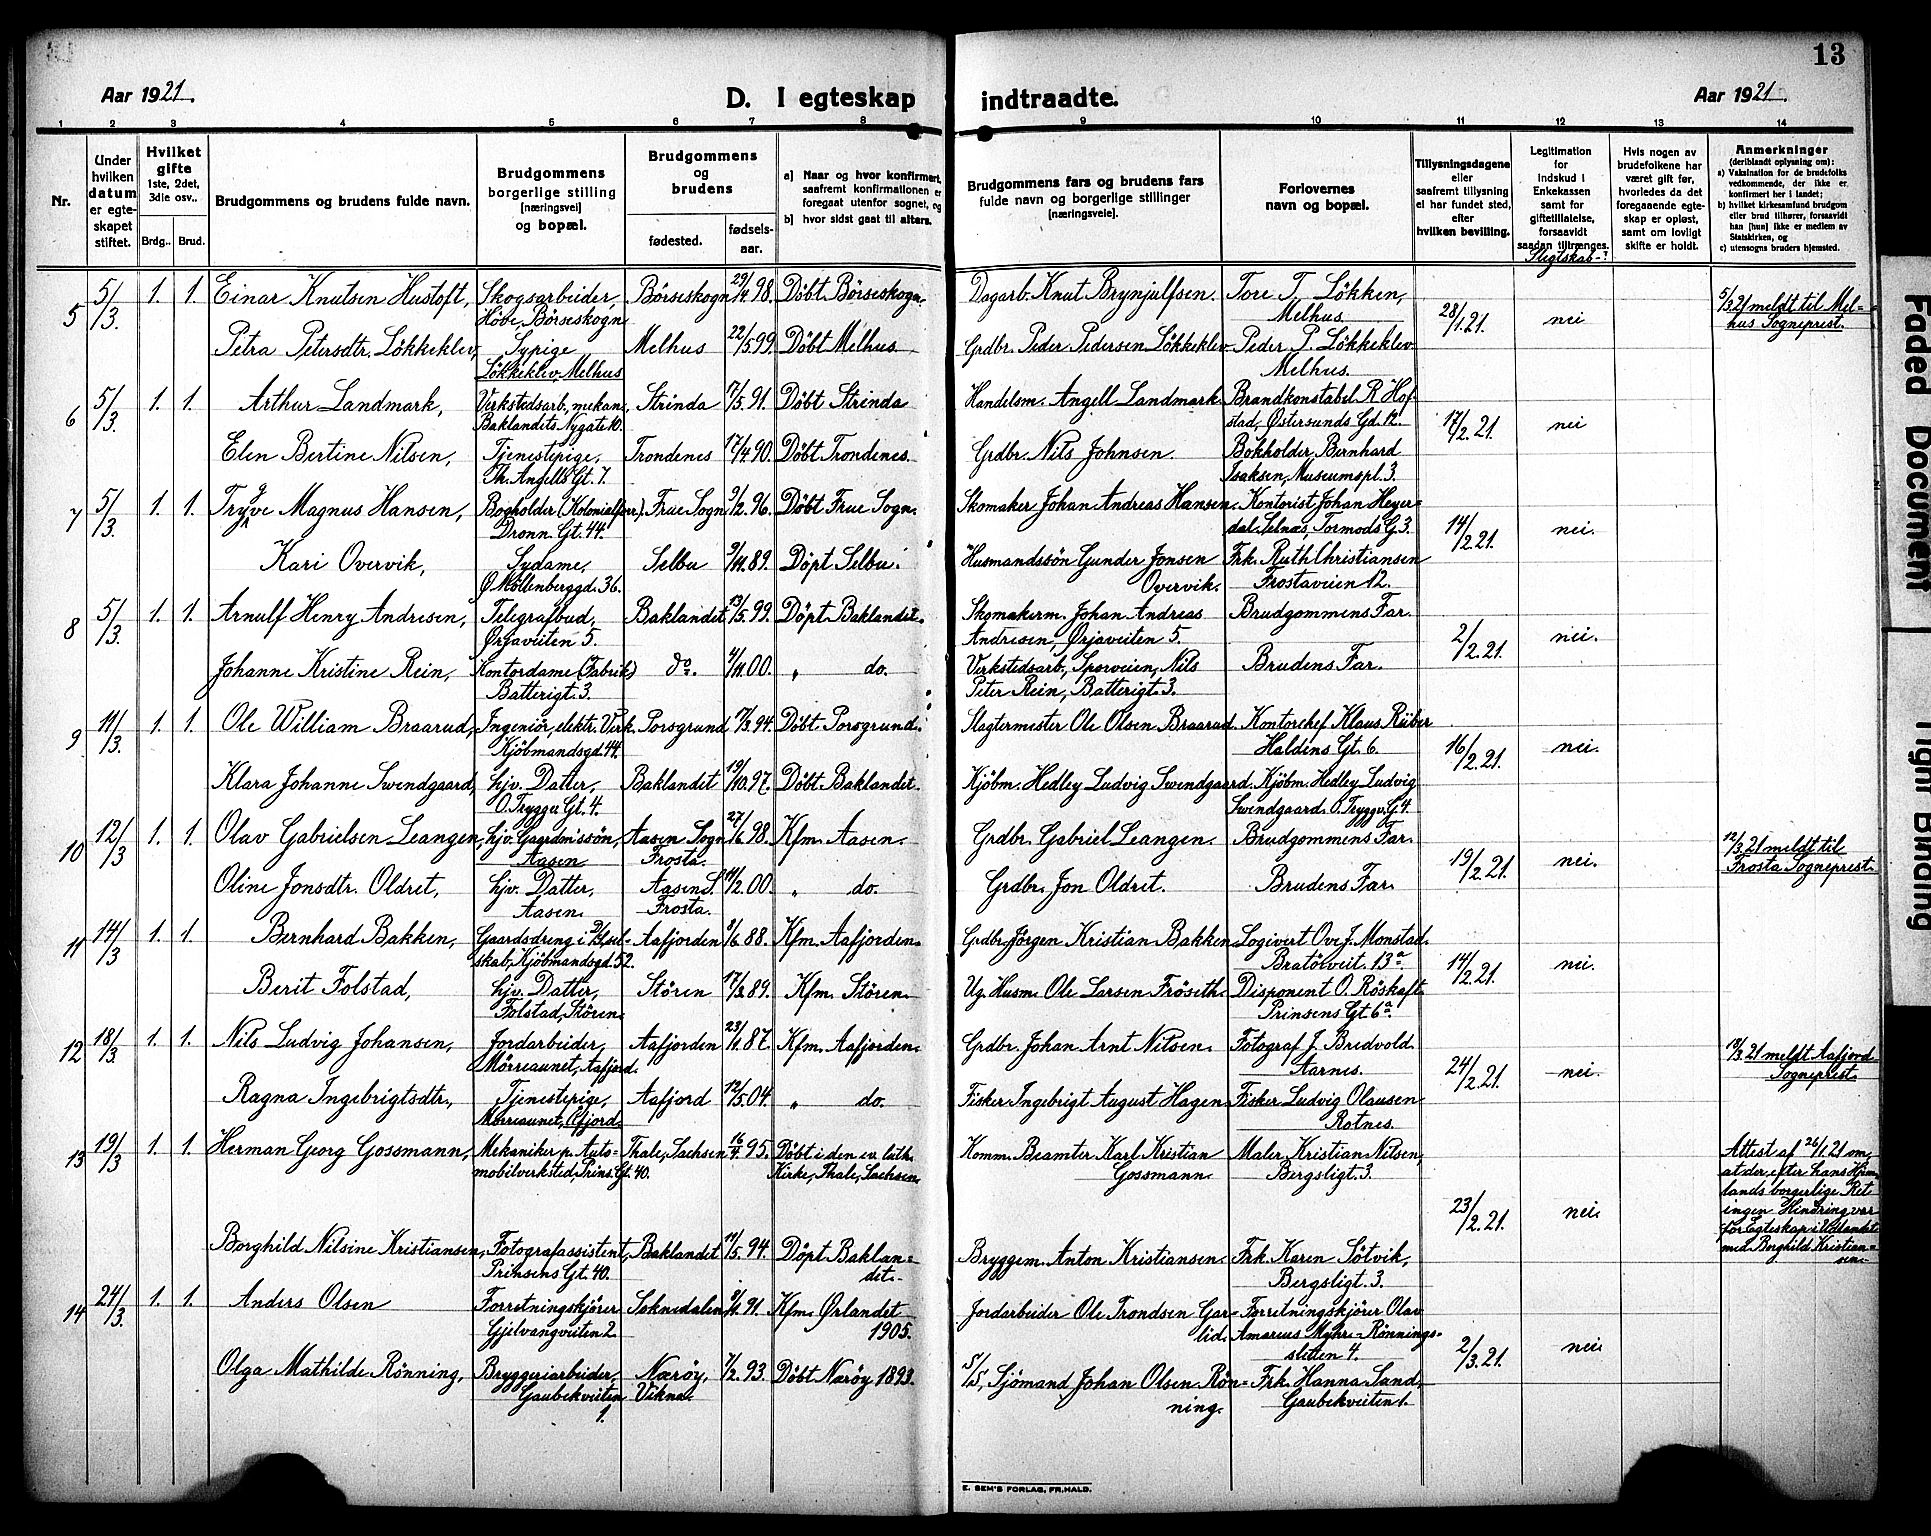 13
Aar 1921.
D. I egteskap indtraadte.
Aar 1921.
1 2 3 4 5 6 7 8 9 10 11 12 13 14
Nr.
Under hvilken datum er egteskapet stiftet.
Hvilket gifte 1ste, 2det, 3die osv..
Brdg.. Brud.
Brudgommens og brudens fulde navn.
Brudgommens borgerlige stilling (næringsvei) og bopæl.
Brudgommens og brudens
fødested. fødselsaar.
a) Naar og hvor konfirmert, saafremt konfirmationen er foregaat utenfor sognet, og
b) hvor sidst gaat til alters.
Brudgommens fars og brudens fars fulde navn og borgerlige stillinger (næringsveie).
Forlovernes navn og bopæl.
Tillysningsdagene eller saafremt tillysning ei har fundet sted, efter hvilken bevilling.
Legitimation for indskud i Enkekassen samt for giftetillatelse, forsaavidt saadan tiltrænges.
Slegtskab?
Hvis nogen av brudefolkene har været gift før, hvorledes da det foregaaende egteskap er opløst, samt om lovligt skifte er holdt.
Anmerkninger (deriblandt oplysning om):
a) Vaksination for de brudefolks vedkommende, der ikke er konfirmert her i landet;
b) hvilket kirkesamfund brudgom eller brud tilhører, forsaavidt han [hun] ikke er medlem av Statskirken, og
c) utensogns bruders hjemsted.
5 5/3. 1. 1. Einar Knutsen Hustoft, Skogsarbeider, Börseskogn 29/4 98. Döbt Börseskogn. Dagarb. Knut Brynjulfsen. Tore T. Lökken, 28/1.21. nei 5/3 21 meldt til Mel-
Höve, Börseskogn Melhus. hus Sogneprest.
Petra Petersdtr. Lökkeklev, Sypige Melhus 22/5 99. Döbt Melhus Grdbr. Peder Pedersen Lökkeklev Peder P. Lökkeklev
Lökkeklev, Melhus Melhus.
6 5/3. 1. 1. Arthur Landmark, Verkstedsarb., mekan. Strinda 7/5. 91. Döbt Strinda Handelsm. Angell Landmark Brandkonstabel R Hof- 17/2. 21. nei
Baklandets Nygate 10. stad, Østersunds Gd. 12.
Elen Bertine Nilsen, Tjenestepige, Trondenes 17/4. 90. Döbt Trondenes. Grdbr. Nils Johnsen. Bokholder Bernhard
Th. Angells Gt. 7. Isaksen, Museumspl. 3
7 5/3. 1. 1. Trygve Magnus Hansen, Bogholder (Kolonialforr), Frue Sogn 9/2. 96. Döbt Frue Sogn. Skomaker Johan Andreas Hansen. Kontorist Johan Heyer- 14/2. 21. nei.
Dronn. Gt. 44. dal Selnæs, Tormods G. 3.
Kari Overvik, Sydame, Selbu 9/11. 89. Döpt Selbu. Husmandssön Gunder Jonsen Frk. Ruth Christiansen
Ø. Möllenberggd. 36. Overvik. Frostaveien 12.
8 5/3. 1. 1. Arnulf Henry Andresen, Telegrafbud, Baklandet 13/5. 99. Döpt Baklandet. Skomakerm. Johan Andreas Brudgommens Far. 2/2. 21. nei.
Ørjaveiten 5. Andresen, Ørjaveiten 5.
Johanne Kristine Rein, Kontordame (Fabrik) do. 4/11. 00. " do. Verkstedsarb., Sporveien, Nils Brudens Far.
Batterigt. 3. Peter Rein, Batterigt. 3.
9 11/3. 1. 1. Ole William Braarud, Ingeniör, elektr. Verk. Porsgrund 17/3. 94. Döbt Porsgrund. Slagtermester Ole Olsen Braarud. Kontorchef Klaus Rüber 16/2. 21. nei.
Kjöbmandsgd. 44. Haldens Gt. 6.
Klara Johanne Swendgaard, hjv. Datter, Baklandet 19/10. 97. Döbt Baklandet. Kjöbm. Hedley Ludvig Swendgaard. Kjöbm. Hedley Ludvig
O. Tryggv. Gt. 4. Swendgaard. O. Tryggv. G. 4.
10 12/3 1. 1. Olav Gabrielsen Leangen, hjv. Gaardmissön, Aasen Sogn 27/6 98. Kfm. Aasen. Grdbr. Gabriel Leangen. Brudgommens Far. 19/2. 21. nei. 12/3. 21 meldt til
Aasen Frosta. Frosta Sogneprest.
Oline Jonsdtr. Oldret, hjv. Datter, Aasen S. 11/2. 00. " do. Grdbr. Jon Oldret. Brudens Far.
Aasen. Frosta.
11 14/3 1. 1. Bernhard Bakken, Gaardsdreng i Bl.sel- Aafjorden 8/6. 88. Kfm. Aafjorden. Grdbr. Jörgen Kristian Bakken Logivert Ove J. Monstad. 14/2. 21. nei.
skab, Kjöbmandsgd. 52. Bratörveit. 13a.
Berit Folstad, hjv. Datter, Stören 17/3. 89. Kfm. Stören. Ug. Husm. Ole Larsen Fröseth. Disponent O. Röskaft.
Folstad, Stören. Prinsens Gt. 6a.
12 18/3 1. 1. Nils Ludvig Johansen, Jordarbeider, Aafjorden 23/11. 87. Kfm. Aafjorden. Grdbr. Johan Arnt Nilsen. Fotograf J. Bredvold 24/2. 21. nei. 18/3. 21 meldt Aafjord
Mörreaunet, Aafjord. Aarnes. Sogneprest.
Ragna Ingebrigtsdtr., Tjenestepige, Aafjord 12/5. 04. " do. Fisker Ingebrigt August Hagen. Fisker Ludvig Olausen
Mörreaunet, Åfjord. Rotnes.
13 19/3 1. 1. Herman Georg Gossmann, Mekaniker p. Auto- Thale, Sachsen 16/4. 95. Döbt i den ev. luth. Komm. Beamter Karl Kristian Maler Kristian Nilsen, 23/2. 21. nei. Attest af 26/1. 21 om,
mobilverksted, Prins. Gt. 40. Kirke, Thale, Sachsen. Gossmann. Bergsligt. 3. at der, efter hans Hjem-
lands borgerlige Ret
ingen Hindring var
for Egteskap i Utlandet
med Borghild Kristian-
sen.
Borghild Nilsine Kristiansen, Fotografassistent, Baklandet 14/5. 94. Döpt Baklan- Bryggem. Anton Kristiansen. Frk. Karen Sötvik,
Prinsens Gt. 40. det. Bergsligt. 3.
14 24/3. 1. 1. Anders Olsen Forretningskjörer Soknedalen 8/11. 91. Kfm. Ørlandet Jordarbeider Ole Trondsen Gar- Forretningskjörer Olav 2/3. 21. nei.
Gjelvangveiten 2. 1905. lid. Amareus Myhre-Rönnings-
sletten 4.
Olga Mathilde Rönning, Bryggeriarbeider, Næröy, 7/2. 93. Döbt Næröy 1893. 5/5, Sjömand Johan Olsen Rön- Frk. Hanna Sand,
Gaubekveiten Vikna. ning. Gaubekveiten 1.
1.
E. SEM'S FORLAG, FR.HALD.
Faded Document
Tight Binding